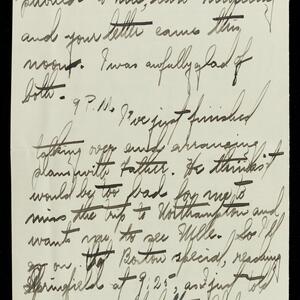 and your letter came this
noon. I was awfully glad of
both.
9 P.M. I've just finished
talking over and arranging
plans with Father. He thinks it
would be too bad for me to
miss the trip to Northampton and
wants me to see Mlle. So I'll
go on the Boston special, reaching
Springfield at 9:25, as I just told